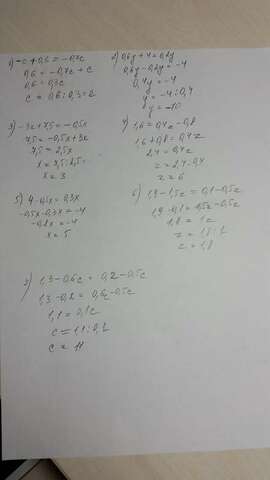 1) -c + 0,6 = -0,7c
0,6 = -0,7c + c
0,6 = 0,3c
c = 0,6 : 0,3 = 2
2) 0,6y + 4 = 0,2y
0,6y - 0,2y = -4
0,4y = -4
y = -4 : 0,4
y = -10
3) -3x + 7,5 = -0,5x
7,5 = -0,5x + 3x
7,5 = 2,5x
x = 7,5 : 2,5
x = 3
4) 1,6 = 0,4z - 0,8
1,6 + 0,8 = 0,4z
2,4 = 0,4z
z = 2,4 : 0,4
z = 6
5) 4 - 0,5x = 0,3x
-0,5x - 0,3x = -4
-0,8x = -4
x = 5
6) 1,9 - 1,5z = 0,1 - 0,5z
1,8 = 1z
z = 1,8 : 1
z = 1,8
1,3 - 0,6c = 0,2 - 0,5c
1,3 - 0,2 = 0,6c - 0,5c
1,1 = 0,1c
c = 1,1 : 0,1
c = 11